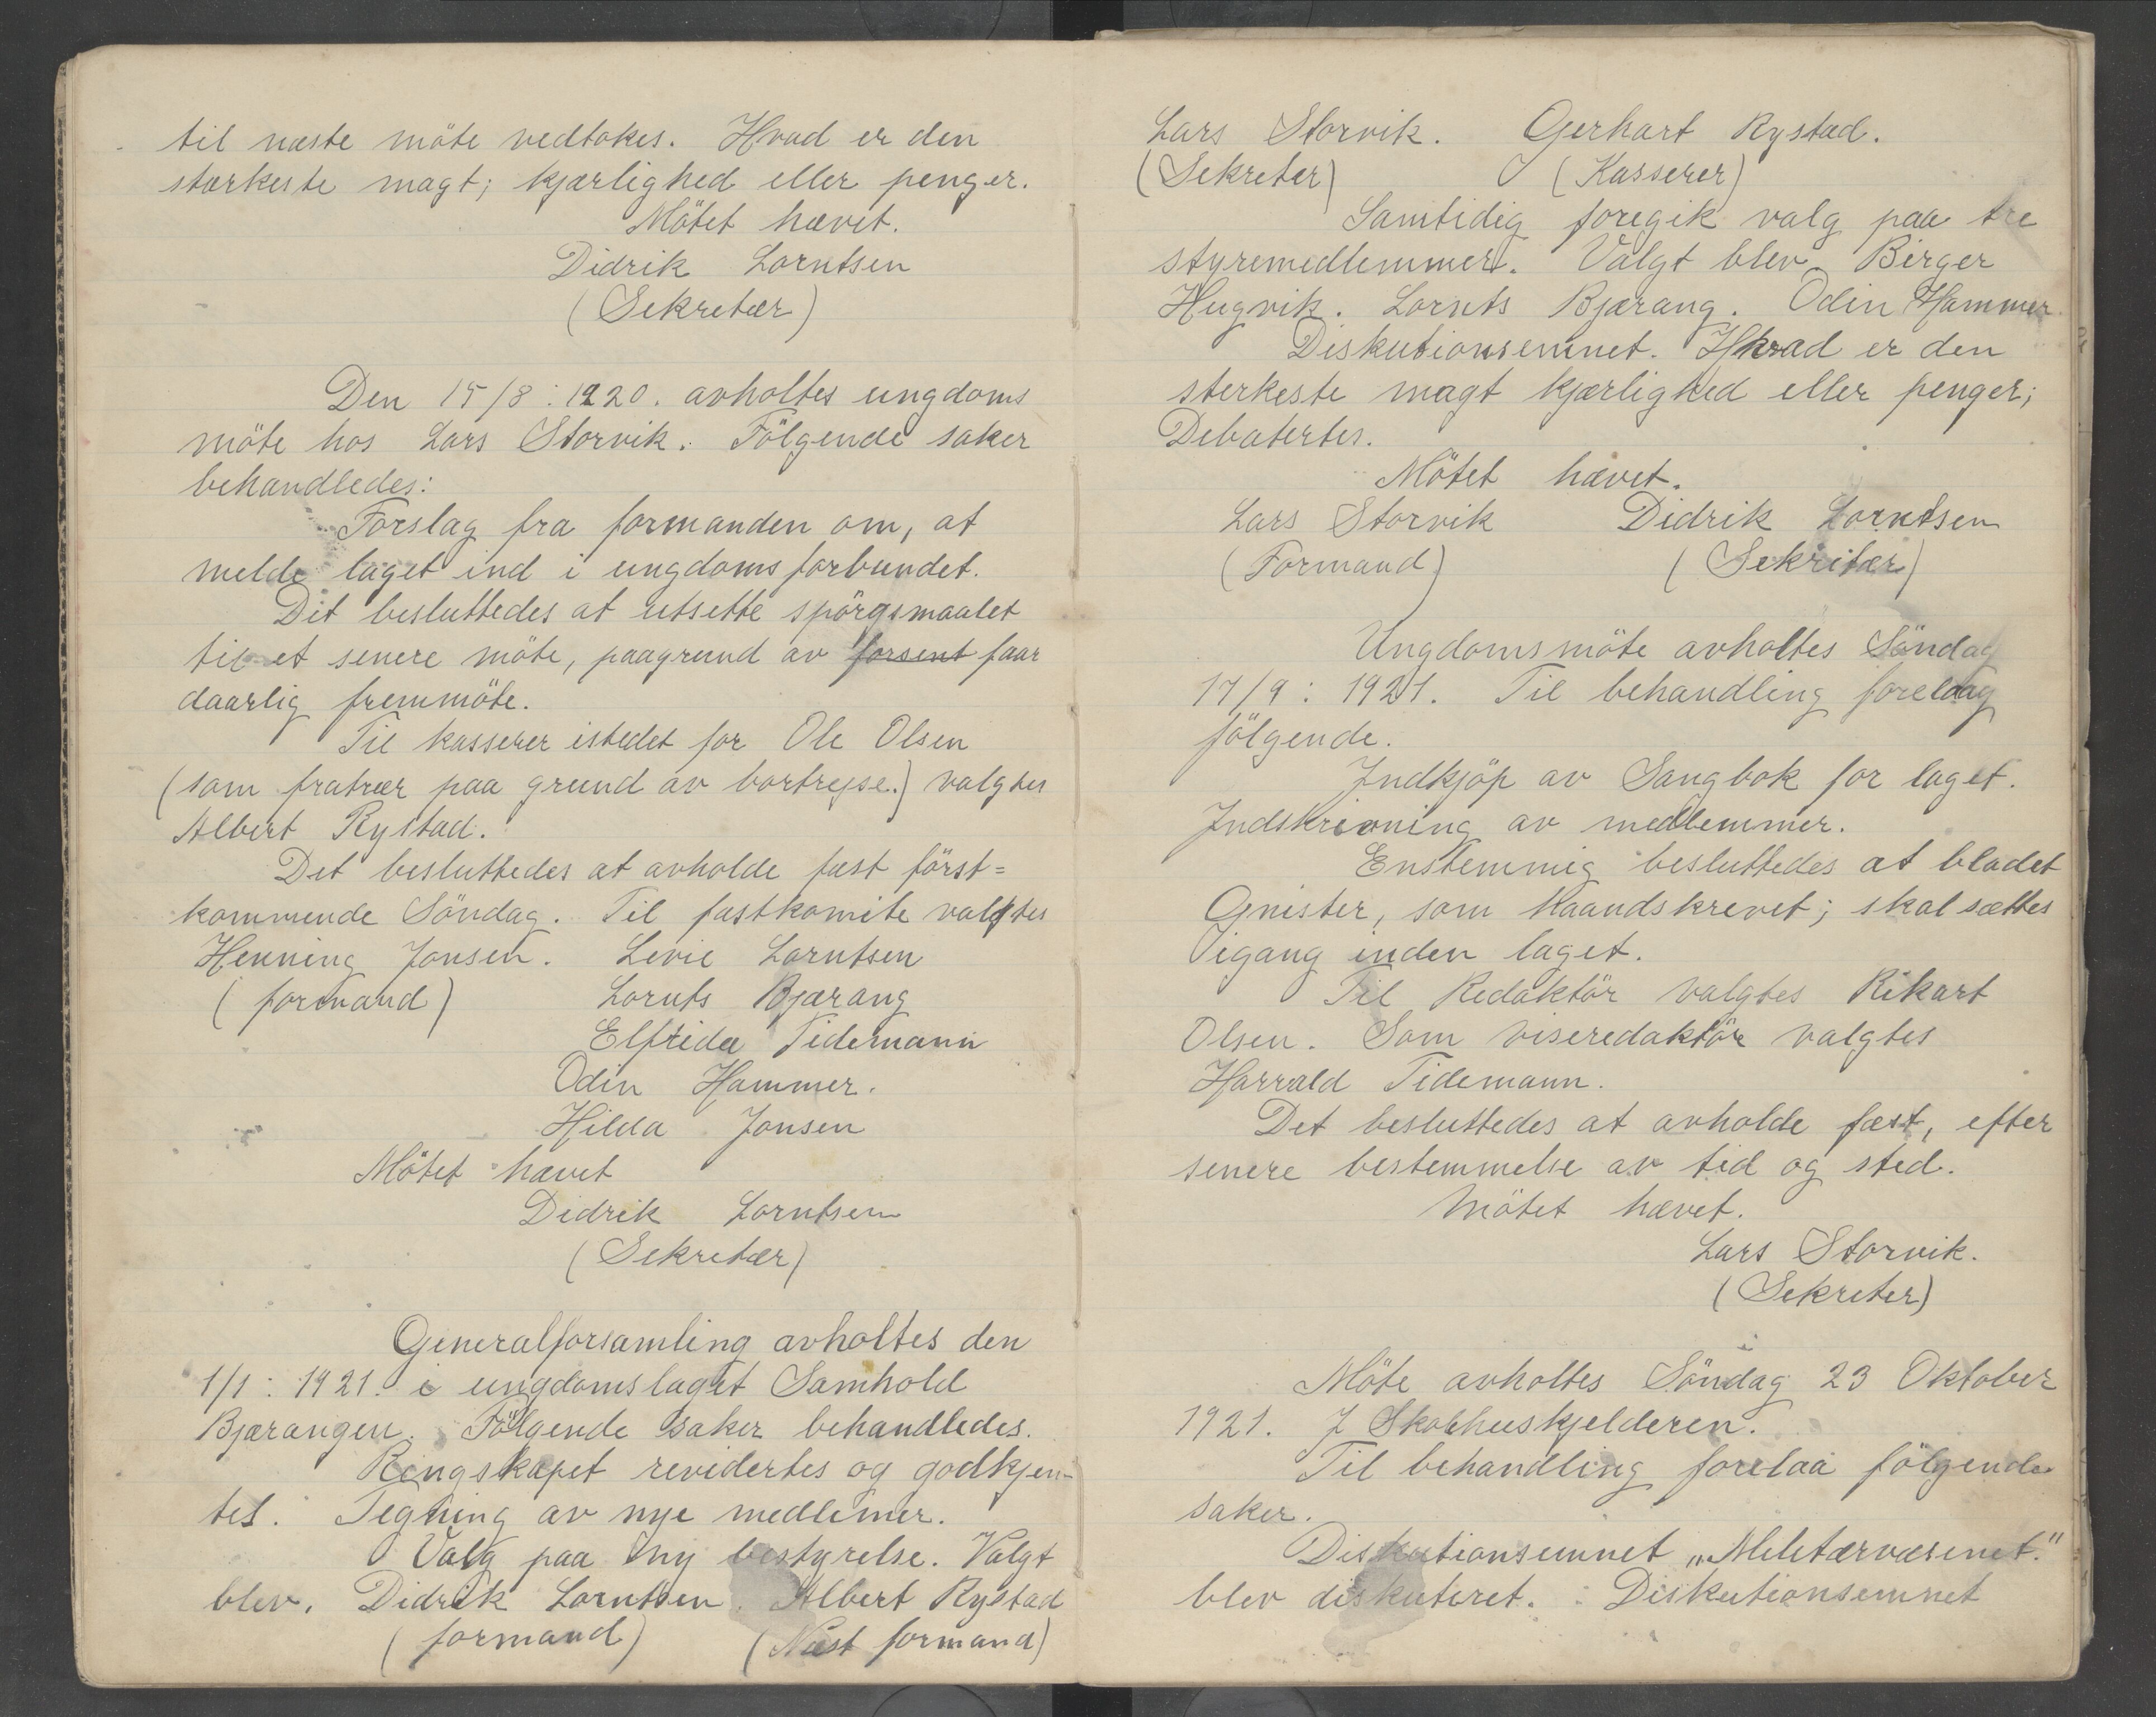 til næste möte vedtokes. Hvad er den
stærkeste magt; kjærlighed eller penger.
Mötet hævet.
Didrik Lorntsen
(Sekretær)
Den 15/8: 1920. avholtes ungdoms
möte hos Lars Storvik. Fölgende saker
behandledes:
Forslag fra formanden om, at
melde laget ind i ungdomsforbundet.
Det besluttedes at utsette spörgsmaalet
til et senere möte, paagrund av forsent faar
daarlig fremmöte.
Til kasserer istedet for Ole Olsen
(som fratrær paa grund av bortrejse.) valgtes
Albert Rystad.
Det besluttedes at avholde fæst först=
kommende Söndag. Til fæstkomite valgtes
Henning Jonsen. Levie Lorntsen
(formand) Lornts Bjærang
Elfrida Tidemann
Odin Hammer.
Hilda Jonsen
Mötet hævet
Didrik Lorntsen
(Sekretær)
Generalforsamling avholtes den
1/1: 1921. i ungdomslaget Samhold
Bjærangen. Fölgende saker behandledes.
Ringskapet revidertes og godkjen-
tes. Tegning av nye medlemer.
Valg paa ny bestyrelse. Valgt
blev. Didrik Lorntsen. Albert Rystad
(formand) (Næst formand)
Lars Storvik. Gerhart Rystad.
(Sekreter) (Kasserer)
Samtidig foregik valg paa tre
styremedlemmer. Valgt blev Birger
Hugvik. Lornts Bjærang. Odin Hammer.
Diskutionsemnet. Hvad er den
sterkeste magt kjærlighed eller penger;
Debatertes.
Mötet hævet.
Lars Storvik Didrik Lorntsen
(Formand) (Sekritær)
Ungdomsmöte avholtes Söndag
17/9: 1921. Til behandling forelaag
fölgende.
Indkjöp av Sangbok for laget.
Indskrivning av medlemmer.
Enstemmig besluttedes at bladet
Gnister, som haandskrevet; skal sættes
igang inden laget.
Til Redaktör valgtes Rikart
Olsen. Som viseredaktör valgtes
Harrald Tidemann.
Det besluttedes at avholde fæst, efter
senere bestemmelse av tid og sted.
Mötet hævet.
Lars Storvik.
(Sekreter)
Möte avholtes Söndag 23 Oktober
1921. I Skolehuskjelderen.
Til behandling forelaa fölgende
saker.
Diskutionsemnet „Miletærvæsenet."
blev diskuteret. Diskutionsemnet